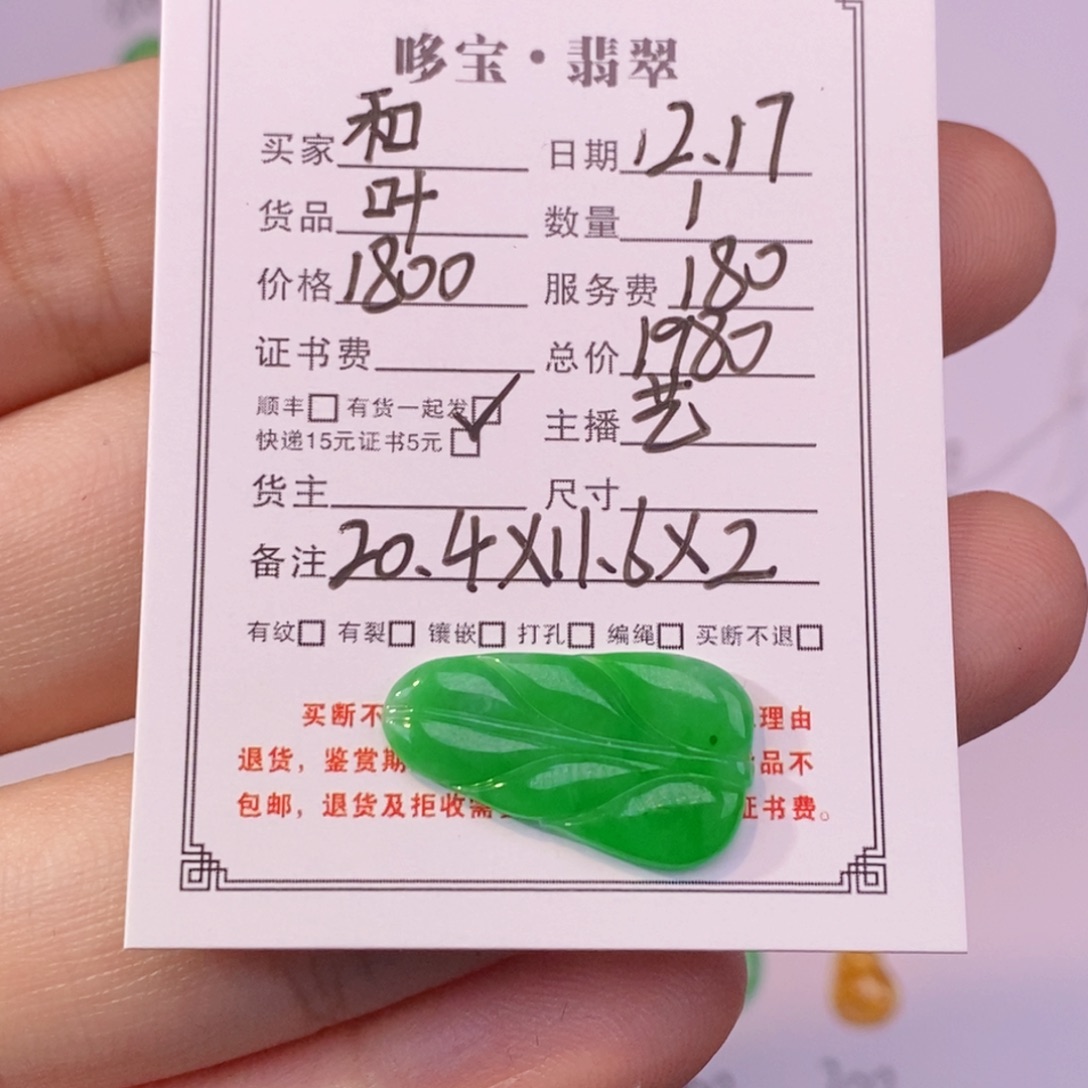 哆宝·翡翠
买家 和 日期 12.17
货品 叶 数量 1
价格 1800 服务费 180
证书费 总价 1980
顺丰 有货一起发
快递15元证书5元 主播 艺
货主 尺寸
备注 20.4X11.6X2
有纹 有裂 镶嵌 打孔 编绳 买断不退
买断不 理由
退货，鉴赏期 品不
包邮，退货及拒收需 证书费。